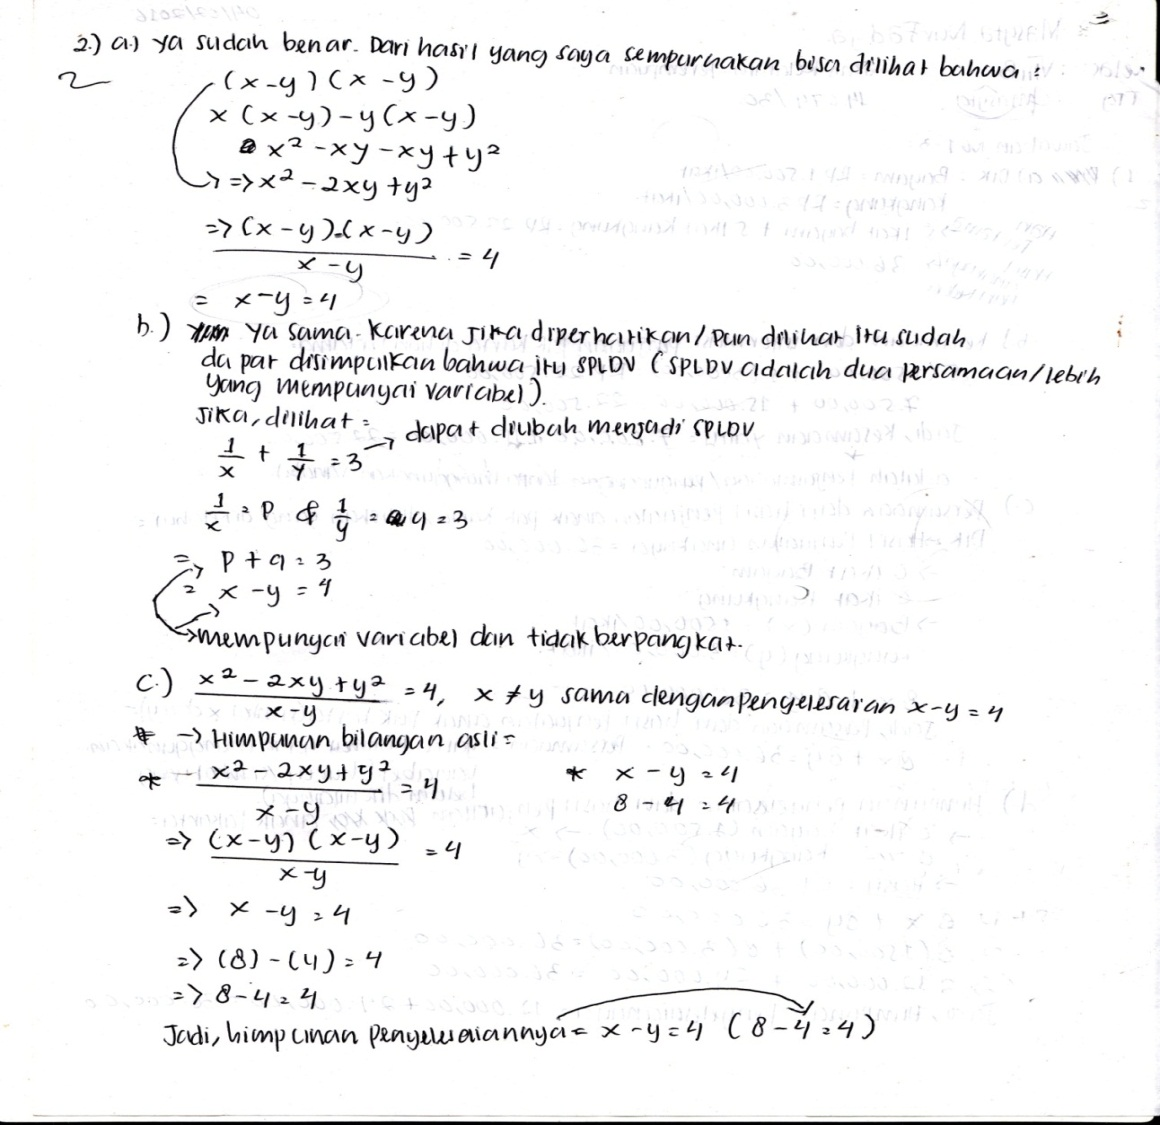 2.) a.) ya sudah benar. Dari hasil yang saya sempurnakan bisa dilihat bahwa :
2
(x-y) (x-y)
x (x-y) - y (x-y)
x² - xy - xy + y²
=> x² - 2xy + y²
=> (x-y).(x-y)
x-y
= 4
= x-y = 4
b.) ya sama. Karena jika diperhatikan/Dan dilihat itu sudah
dapat disimpulkan bahwa itu SPLDV (SPLDV adalah dua persamaan/lebih
yang mempunyai variabel).
Jika, dilihat =
1/x + 1/y = 3 → dapat diubah menjadi SPLDV
1/x = P & 1/y = q = 3
=> P + q = 3
= x - y = 4
→ mempunyai variabel dan tidak berpangkat.
c.) x² - 2xy + y² / x-y = 4, x ≠ y sama dengan penyelesaian x-y = 4
→ Himpunan bilangan asli =
* x² - 2xy + y² / x-y = 4
* x - y = 4
8 - 4 = 4
=> (x-y) (x-y) / x-y = 4
=> x - y = 4
=> (8) - (4) = 4
=> 8 - 4 = 4
Jadi, himpunan penyelesaiannya = x - y = 4 (8 - 4 = 4)